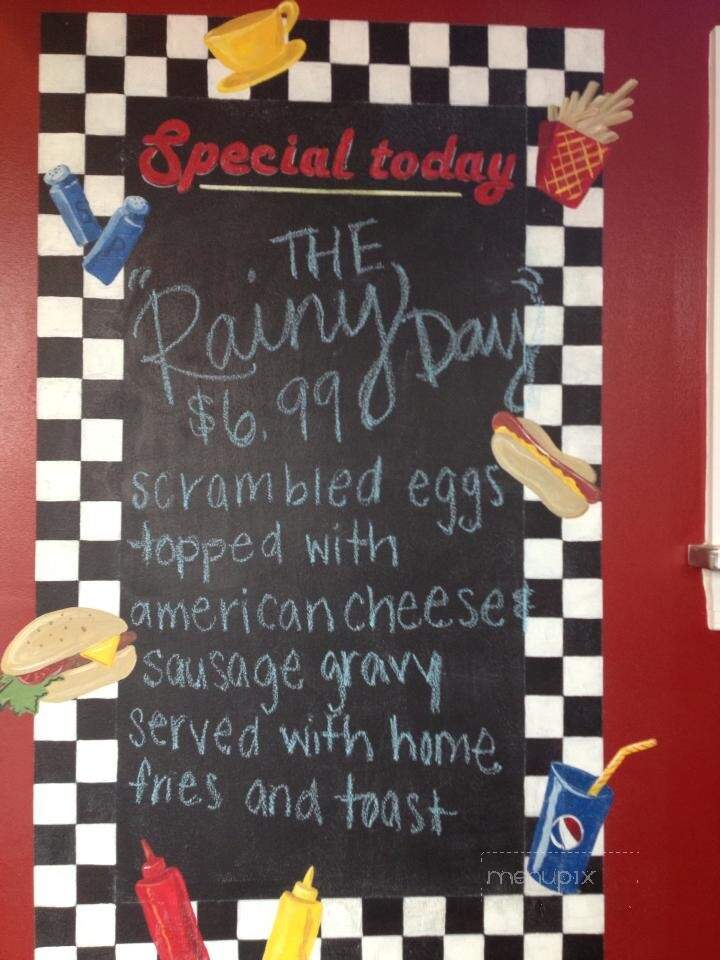 Special today
THE
"Rainy Day"
$6.99
scrambled eggs
topped with
american cheese &
sausage gravy
served with home
fries and toast
S P
menupix